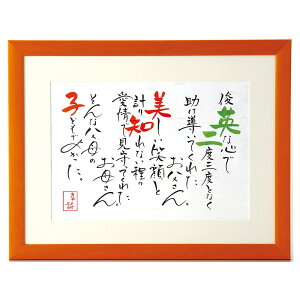 俊英な心で
二度三度となく
助け導いてくれた
お父さん
美しい笑顔と
計り知れない程の
愛情で見守ってくれた
お母さん
そんな父母の
子どもで